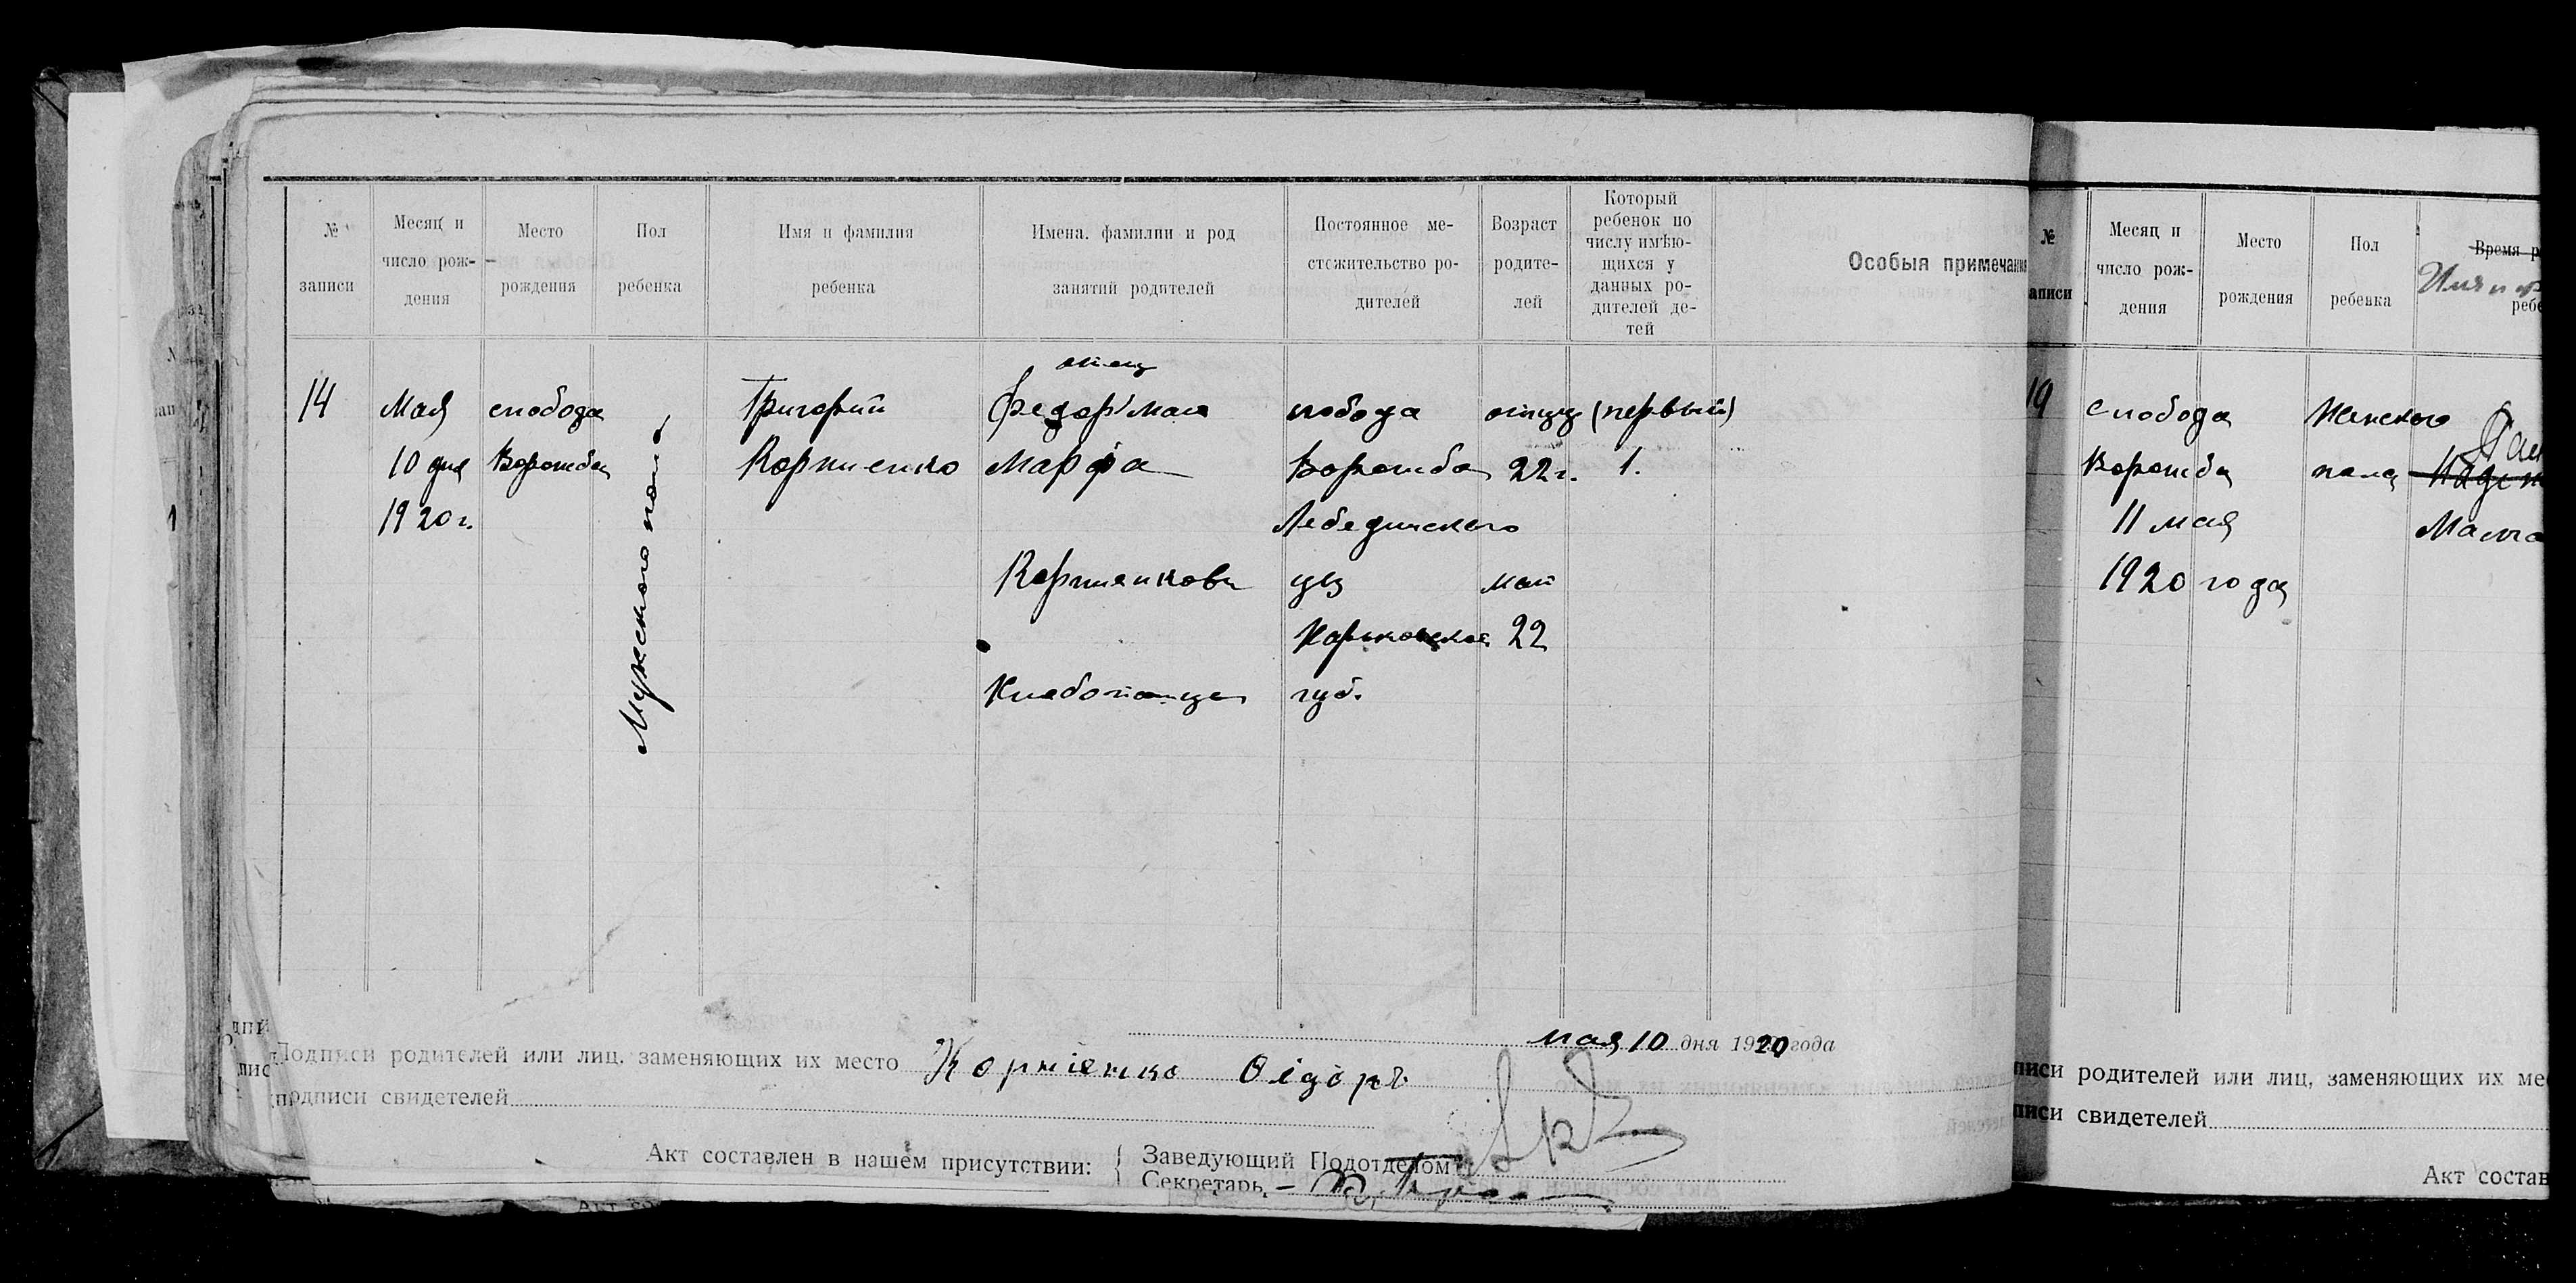 № записи
Месяц и число рож-дения
Место рождения
Пол ребенка
Имя и фамилия ребенка
Имена, фамилии и род занятий родителей
Постоянное ме-стожительство ро-дителей
Возраст родите-лей
Который ребенок по числу имѣю-щихся у данных ро-дителей де-тей
Особыя примечан
14
Мая
10 дня
1920 г.
слобода
Ворожба
Мужского пола
Григорий
Корниенко
отец
Федор мать
Марфа
Корниенкови
Хлебопашцы
слобода
Ворожба
Лебединского
уез
Харьковской
губ.
отцу
22 г.
мат
22
(первый)
1.
мая 10 дня 1920 года
Подписи родителей или лиц, заменяющих их место Корніенко Ѳідоръ
подписи свидетелей
Акт составлен в нашем присутствии:
Заведующий Подотделом
Секретарь
№ аписи
Месяц и число рож-дения
Место рождения
Пол ребенка
Время р
Имя и ф
ребе
19
слобода
Ворожба
11 мая
1920 года
Женского
пола
писи родителей или лиц, заменяющих их ме
писи свидетелей
Акт состав